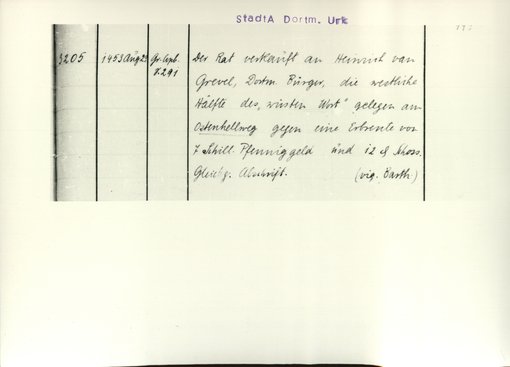 StadtA Dortm. Urk
3205
1453 Aug 23
Gr. Cop.
S. 291
Der Rat verkauft an Heinrich van
Grevel, Dortm. Bürger, die westliche
Hälfte des „wüsten Wort" gelegen am
Ostenhellweg gegen eine Erbrente von
7 Schill. Pfenniggeld und 12 ₰ Schoss.
Gleichz. Abschrift. (vig. Barth.)